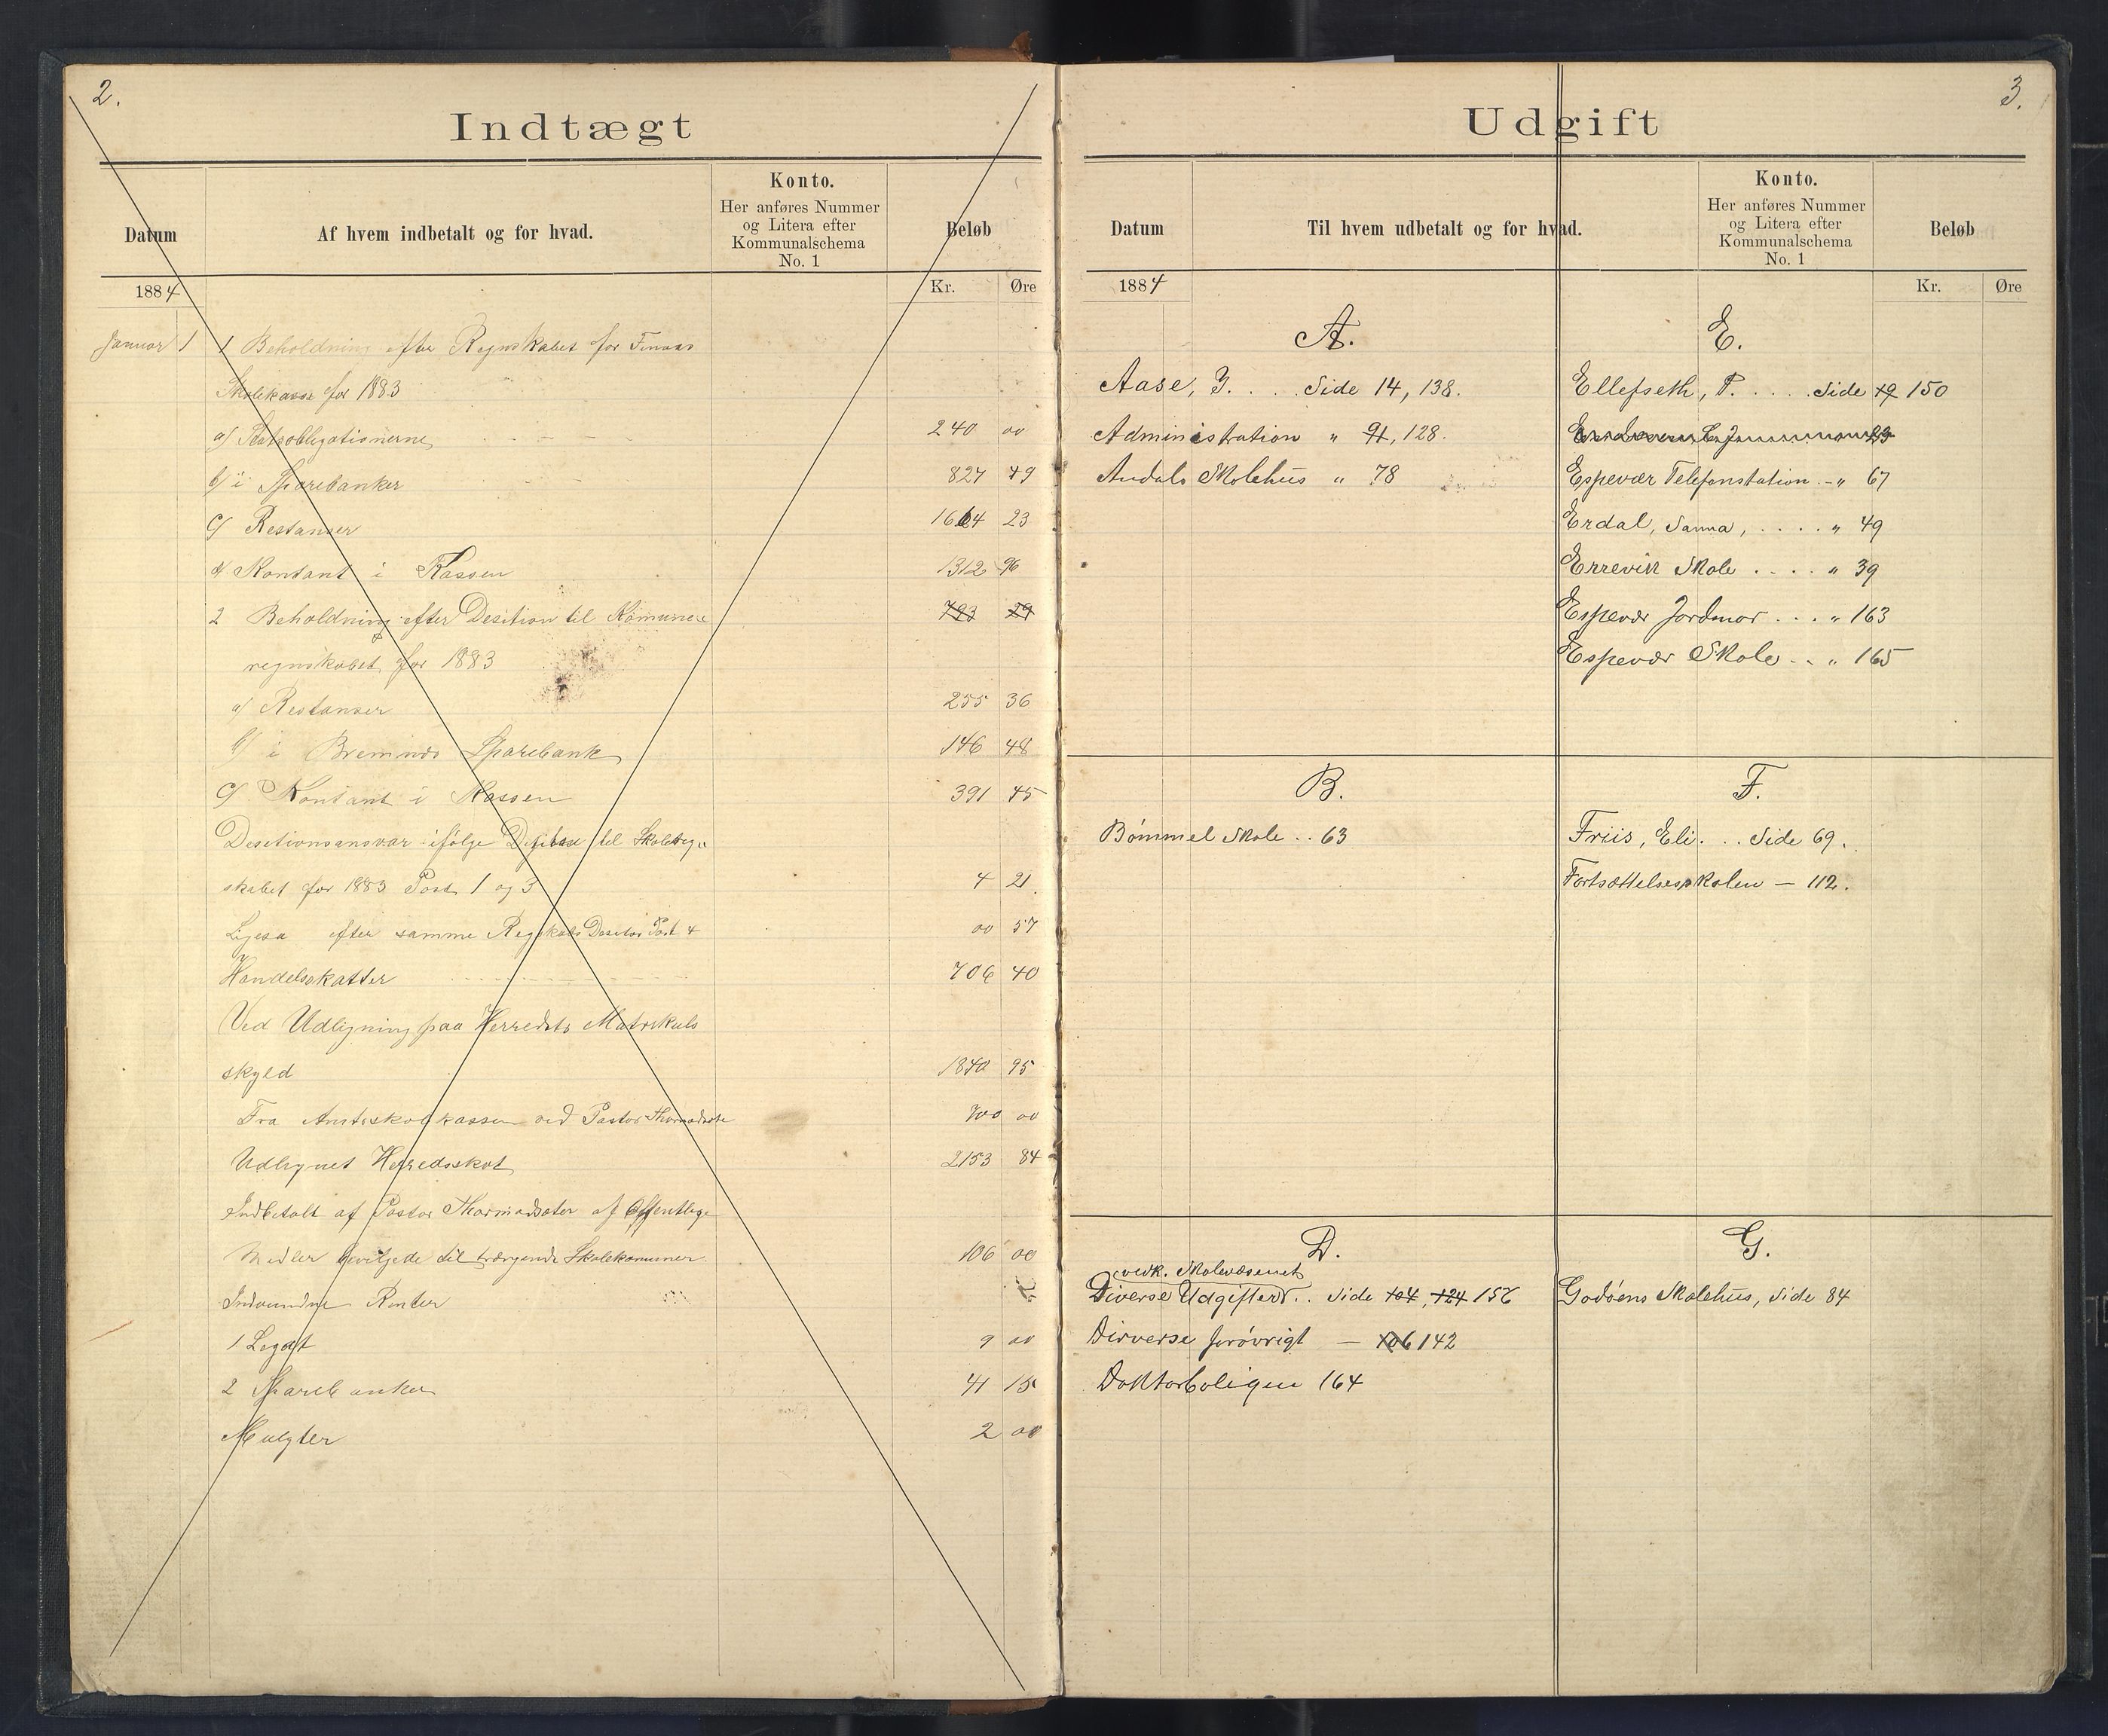 2.
Indtægt
Datum
Af hvem indbetalt og for hvad.
Konto.
Her anføres Nummer
og Litera efter
Kommunalschema
No. 1
Beløb
1884
Kr. Øre
Januar 1 1 Beholdning efter Regnskabet for Finaas
Skolekasse for 1883
a/ Statsobligationerne 240 00
b/ i Sparebanker 827 49
c/ Restanser 1664 23
d/ Kontant i Kassen 1312 96
2 Beholdning efter Desition til Komune
793 29
regnskabet for 1883
a/ Restanser 255 36
b/ i Bremnes Sparebank 146 48
c/ Kontant i Kassen 391 45
Desetionsansvar ifølge til Skolereg
skabet for 1883 Post 1 og 3 4 21
Ligesa efter samme Post 4 00 57
Handelsskatter 706 40
Ved Udligning paa Herredets Matrikuls
skyld 1840 95
Fra Amtsskolekassen ved Pastor 700 00
Udlignet Herredsskat 2153 84
Indbetalt af Pastor af Offentlige
Midler bevilgede til trængende Skolekomuner 106 00
Indvundne Renter
1 Legat 9 00
2 Sparebanker 41 15
Mulgter 2 00
3.
Udgift
Datum
Til hvem udbetalt og for hvad.
Konto.
Her anføres Nummer
og Litera efter
Kommunalschema
No. 1
Beløb
1884
Kr. Øre
A.
Aase, J. . . . Side 14, 138.
Administration " 91, 128.
Andals Skolehus " 78
E.
Ellefseth, P. . . . . Side 19 150
Espevær Telefonstation - " 67
Erdal, Sanna, . . . . " 49
Errevik Skole . . . . " 39
Espevær Jordmor . . . " 163
Espevær Skole . . " 165
B.
Bømmel Skole . . 63
F.
Friis, Eli. . . Side 69.
Fortsættelsesskolen — 112.
D.
vedk. Skolevæsenet
Diverse Udgifter . . Side 104, 124 156
Dirverse forøvrigt — 106 142
Doktorboligen 164
G.
Godøens Skolehus, Side 84